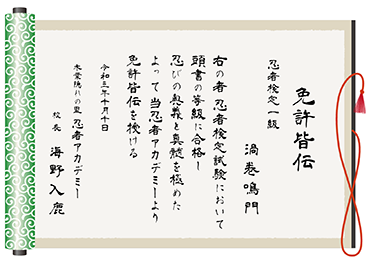 免許皆伝
忍者検定一級
渦巻鳴門
右の者 忍者検定試験において
頭書の等級に合格し
忍びの奥義と真髄を極めた
よって当忍者アカデミーより
免許皆伝を授ける
令和三年十月十日
木葉隠れの里 忍者アカデミー
校長 海野入鹿